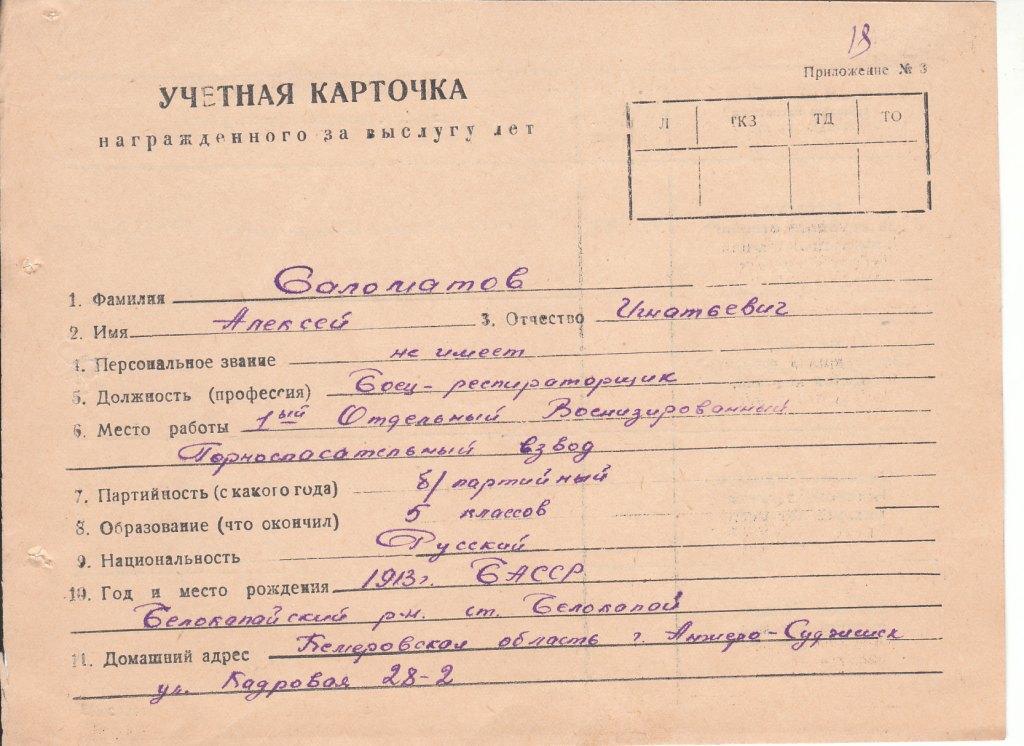 18
Приложение № 3
УЧЕТНАЯ КАРТОЧКА
награжденного за выслугу лет
Л ГКЗ ТД ТО
1. Фамилия Саломатов
2. Имя Алексей 3. Отчество Игнатьевич
4. Персональное звание не имеет
5. Должность (профессия) Боец-респираторщик
6. Место работы 1ый Отдельный Военизированный
Горноспасательный взвод
7. Партийность (с какого года) б/партийный
8. Образование (что окончил) 5 классов
9. Национальность Русский
10. Год и место рождения 1913г. БАССР
Белокатайский р-н. ст. Белокатай
11. Домашний адрес Кемеровская область г. Анжеро-Судженск
ул. Кадровая 28-2